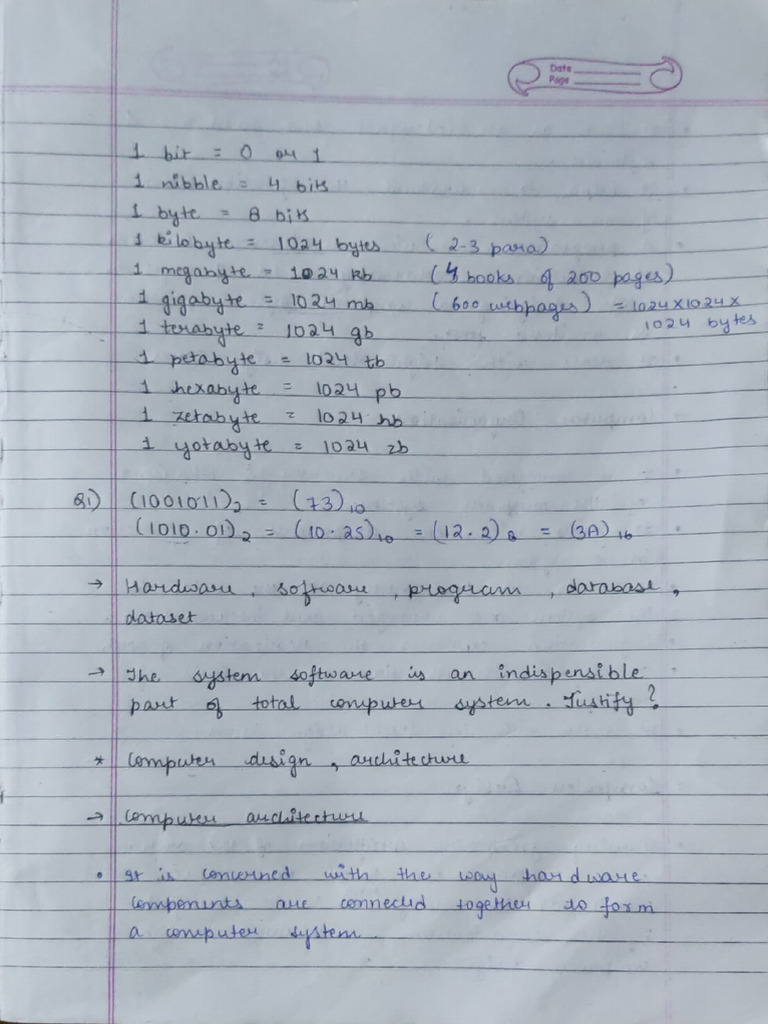 Date
Page
1 bit = 0 or 1
1 nibble = 4 bits
1 byte = 8 bits
1 kilobyte = 1024 bytes (2-3 para)
1 megabyte = 1024 kb (4 books of 200 pages)
1 gigabyte = 1024 mb (600 webpages) = 1024 × 1024 ×
1024 bytes
1 terabyte = 1024 gb
1 petabyte = 1024 tb
1 hexabyte = 1024 pb
1 zetabyte = 1024 hb
1 yotabyte = 1024 zb
Q1) (1001011)₂ = (73)₁₀
(1010.01)₂ = (10.25)₁₀ = (12.2)₈ = (3A)₁₆
→ Hardware, software, program, database,
dataset
→ The system software is an indispensible
part of total computer system. Justify?
* Computer design, architecture
→ Computer architecture
• It is concerned with the way hardware
components are connected together to form
a computer system.